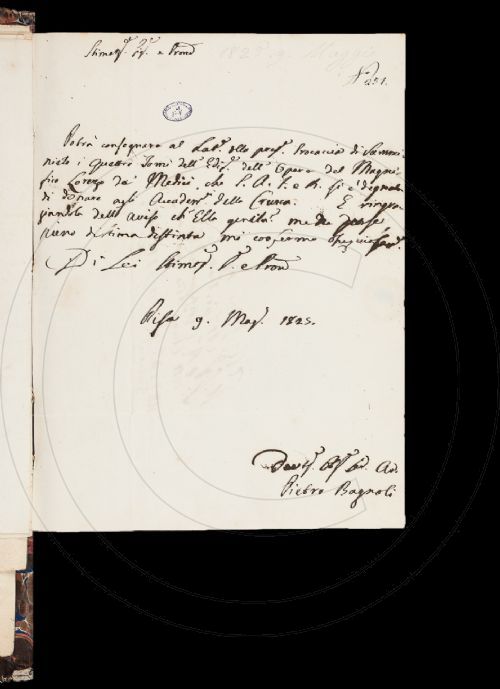 Stimat.e Sig.e e Pron.e
1825. 9. Maggio
N.o 251.
Potrà consegnare al Lat.e della pres.e Procaccia di Sammi-
niato i quattro Tomi dell' Ediz.e dell' Opere del Magni-
fico Lorenzo de' Medici, che S. A. I. e R. si è degnata
di donare agli Accadem.i della Crusca. E ringra-
ziandola dello avviso ch' Ella gentilm.e me ne
pieno di stima distinta mi confermo
Di Lei Stimat.e S.e e Pron.e
Pisa 9. Mag.o 1825.
Devot.o Obb.o
Pietro Bagnoli